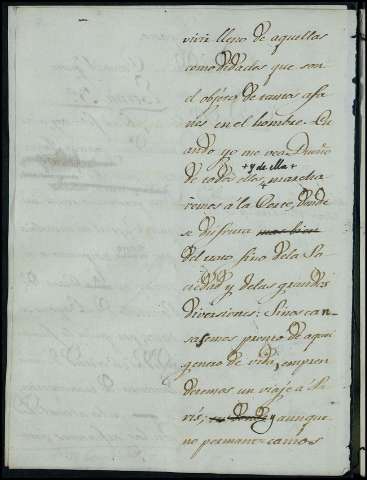 vivir lleno de aquellas
comodidades que son
el objeto de tantos afa
nes en el hombre. Cu
ando yo me vea Dueño
+ y de ella +
de todo ello, marcha
remos a la Corte, donde
se disfruta mas bien
del trato fino de la So
ciedad y de las grandes
diversiones: Si nos can-
sasemos pronto de aquel
genero de vida, empren
deremos un viaje á Pa
rís, en donde y aunque
no permanezcamos